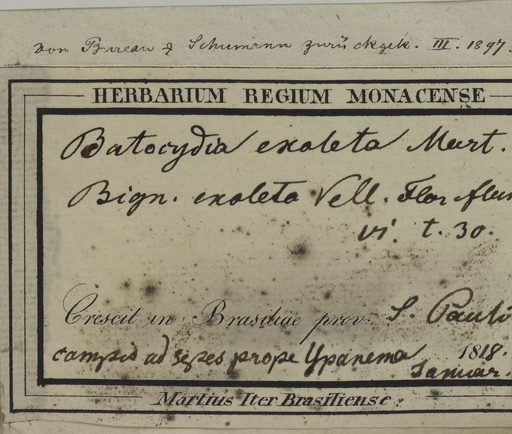 von Bureau & Schumann zurückgek. III. 1897.
HERBARIUM REGIUM MONACENSE
Batocydia exoleta Mart.
Bign. exoleta Vell. Flor flum
vi. t. 30.
Crescit in Brasiliae prov. S. Pauli
campis ad sepes prope Ypanema 1818.
Januar.
Martius Iter Brasiliense.